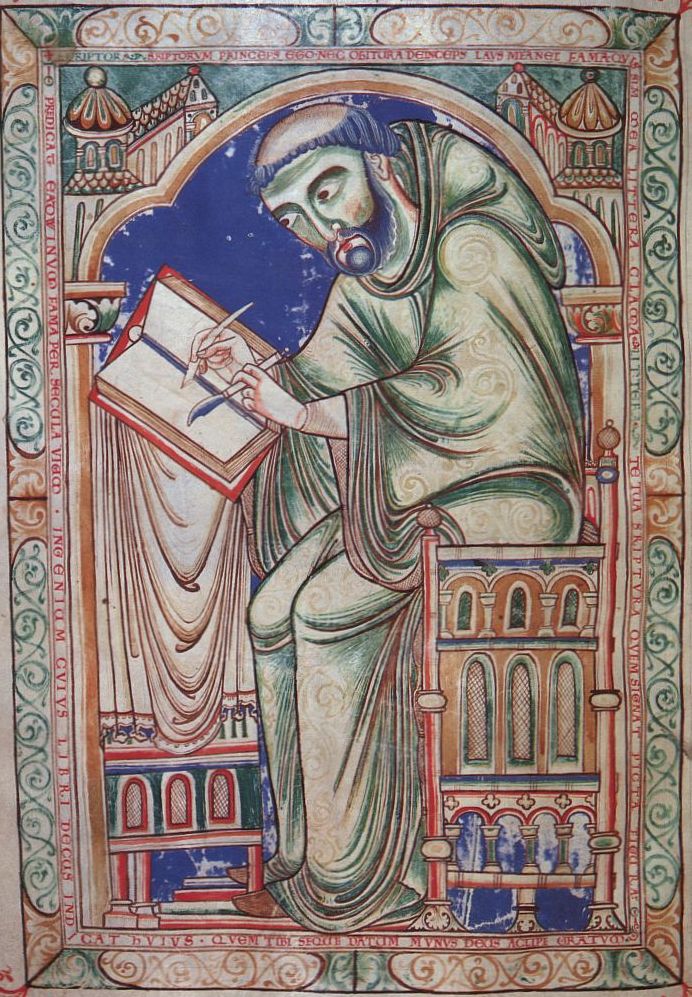 SRIPTORVM PRINCEPS EGO NEC OBITURA DEINCEPS LAVS MEA NEC FAMA QV
SIM MEA LITTERA CLAMA LITTERA TE TUA SCRIPTVRA QVEM SIGNAT PICTA FIGVRA
PREDICAT EADWINVM FAMA PER SECULA VIVVM · INGENIUM CVIVS LIBRI DECVS INDI
CAT HVIVS · QVEM TIBI SEQUE DATVM MVNVS DEUS ACCIPE GRATVM